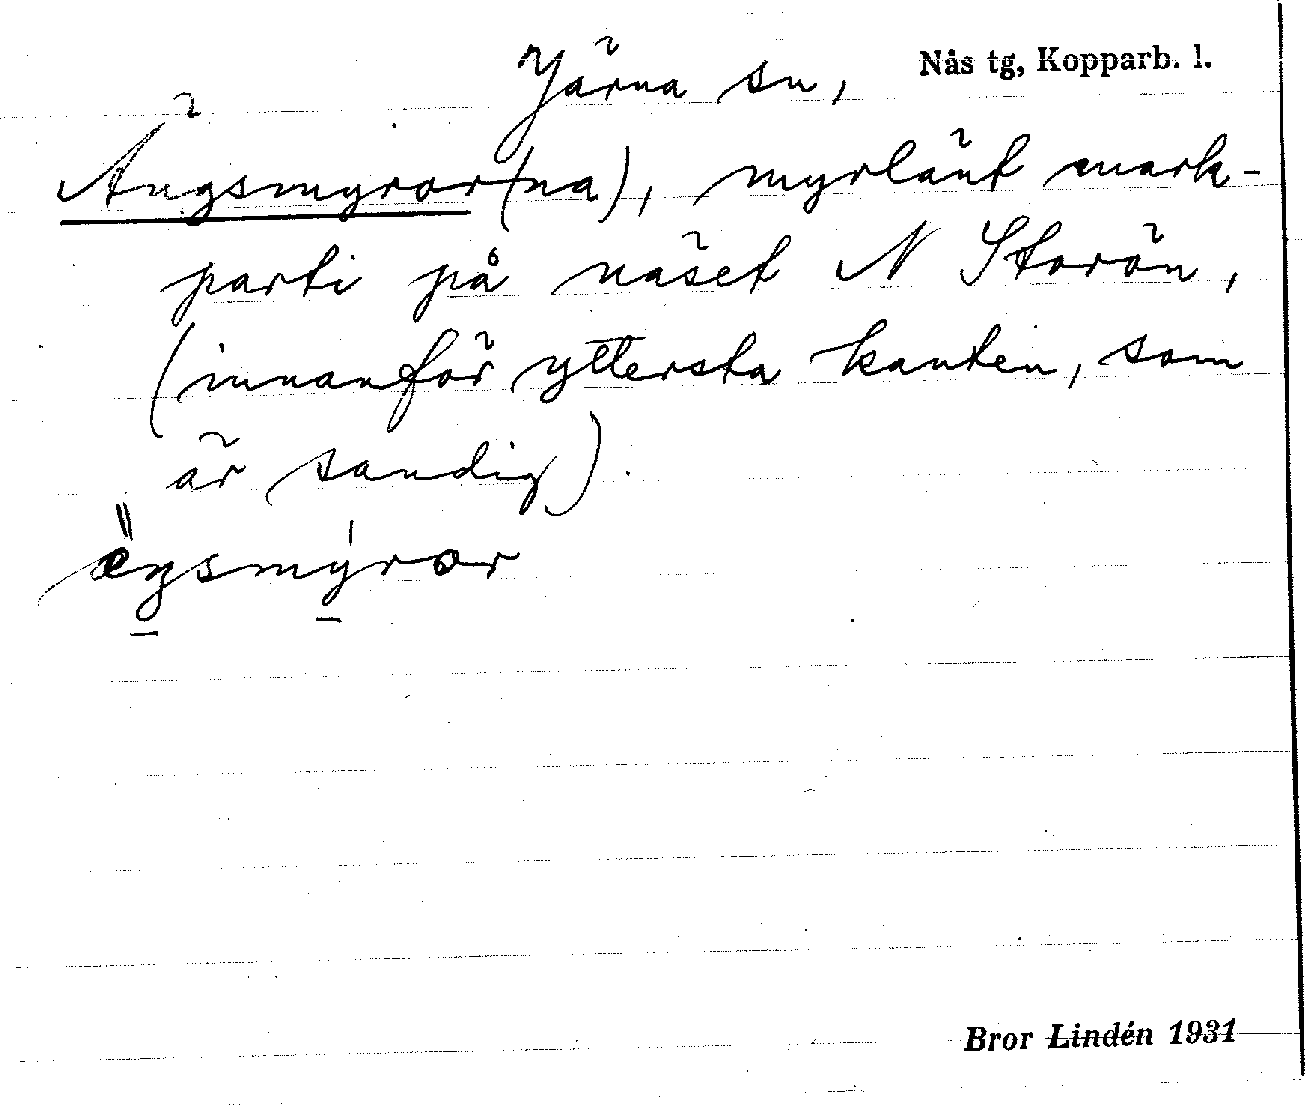 Järna sn, Nås tg, Kopparb. l.
Ängsmyror(na), myrlänt mark-
parti på näset N Storön,
(innanför yttersta kanten, som
är sandig).
Bror Lindén 1931